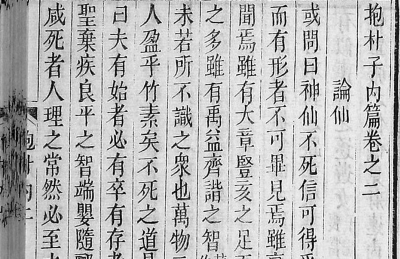 抱朴子内篇卷之二
論仙
或問曰神仙不死信可得
而有形者不可畢見焉雖
聞焉雖有大章豎亥之足
之多雖有禹益齊諧之智
未若所不識之衆也萬物
人盈乎竹素矣不死之道
曰夫有始者必有卒有存者
聖棄疾良平之智端嬰隨
咸死者人理之常然必至